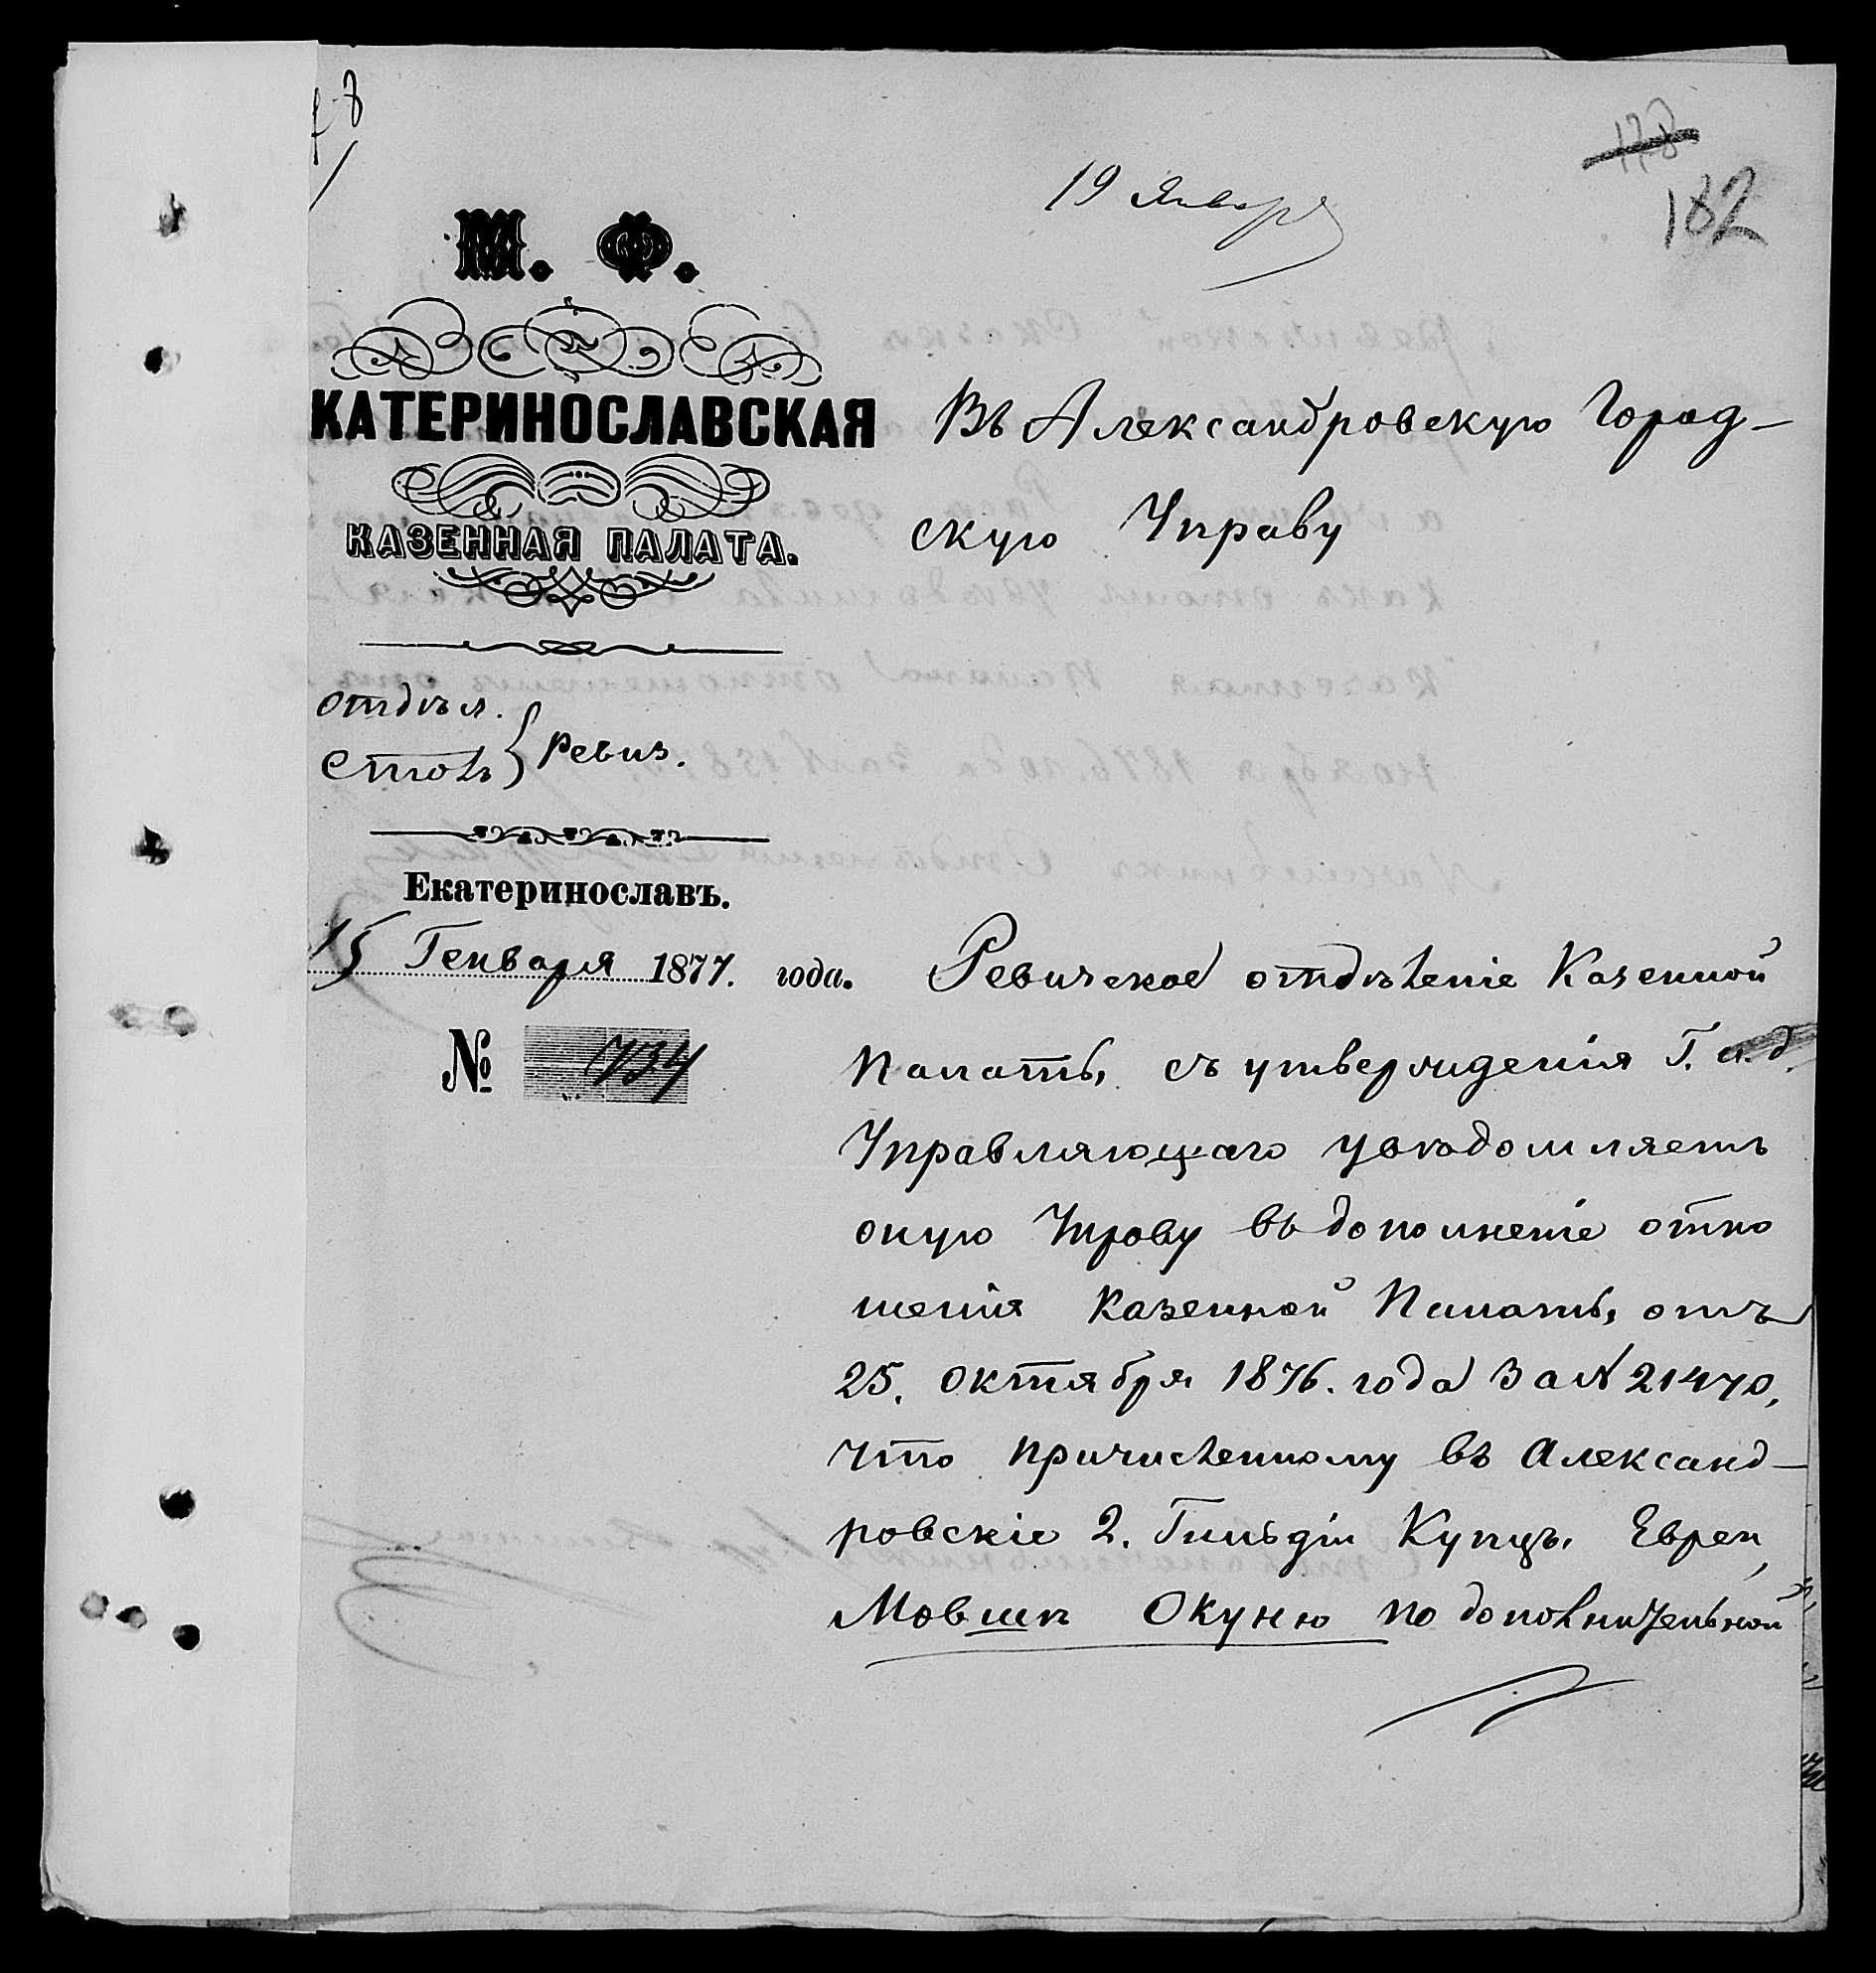 19 Января
178
182
М. Ф.
КАТЕРИНОСЛАВСКАЯ
КАЗЕННАЯ ПАЛАТА.
Отдѣл.
Столъ } Ревиз.
Екатеринославъ.
15 Генваря 1877. года.
№ 734
Въ Александровскую Город-
скую Управу
Ревизское отдѣленіе Казенной
Палаты, съ утвержденія Г. и. д.
Управляющаго увѣдомляетъ
оную Управу въ дополненіе отно
шенія Казенной Палаты, отъ
25. Октября 1876. года за № 21470,
что причисленному въ Александ-
ровскіе 2. Гильдіи Купцы, Еврею
Мовшѣ Окуню по дополнительной